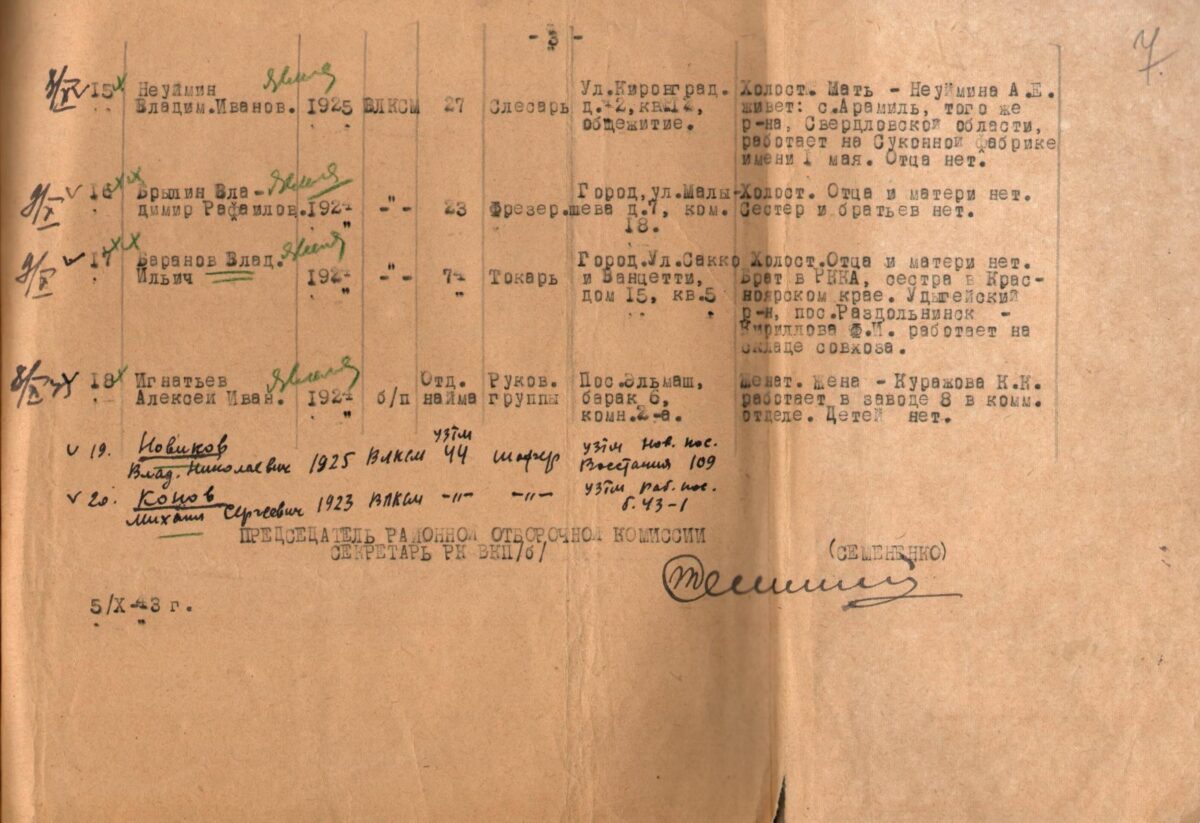 - 3 -
7.
9/X 15 Х Неуймин явился Ул.Кировград. Холост. Мать - Неуймина А.Е.
Владим.Иванов. 1925 ВЛКСМ 27 Слесарь д.42, кв.12, живет: с.Арамиль, того же
общежитие. р-на, Свердловской области,
работает на Суконной фабрике
имени I мая. Отца нет.
9/X 16 ХХ Брылин Вла- явился Город, ул.Малы- Холост. Отца и матери нет.
димир Рафаилов. 1924 -"- 23 Фрезер. шева д.7, ком. Сестер и братьев нет.
" 18.
9/X 17 ХХ Баранов Влад. явился Город.Ул.Сакко Холост.Отца и матери нет.
Ильич 1924 -"- 74 Токарь и Ванцетти, Брат в РККА, сестра в Крас-
" " дом 15, кв.5 ноярском крае. Удыгейский
р-н, пос.Раздольнинск -
Кириллова Ф.И. работает на
складе совхоза.
18 Х Игнатьев явился Отд. Руков. Пос.Эльмаш, Женат. Жена - Куражова К.К.
Алексей Иван. 1924 б/п найма группы барак 6, работает в заводе 8 в комм.
" комн.2-а. отделе. Детей нет.
19. Новиков УЗТМ УЗТМ Нов. пос.
Влад. Николаевич 1925 ВЛКСМ 44 шофер Восстания 109
20. Конов УЗТМ раб. пос.
Михаил Сергеевич 1923 ВЛКСМ -"- -"- б. 43-1
ПРЕДСЕДАТЕЛЬ РАЙОННОЙ ОТБОРОЧНОЙ КОМИССИИ
СЕКРЕТАРЬ РК ВКП/б/ (СЕМЕНЕНКО)
5/X-43 г.